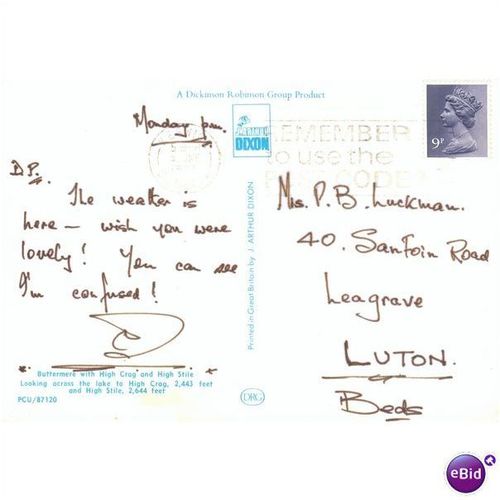 A Dickinson Robinson Group Product
Monday pm.
DIXON
REMEMBER
to use the
POST CODE
9P
D.P.
The weather is
here – wish you were
lovely! You can see
I'm confused!
Mrs. P. B. Luckman.
40. Sanfoin Road
Leagrave
LUTON.
Beds
Printed in Great Britain by J. ARTHUR DIXON
Buttermere with High Crag and High Stile
Looking across the lake to High Crag, 2,443 feet
and High Stile, 2,644 feet
PCU/87120
DRG
eBid